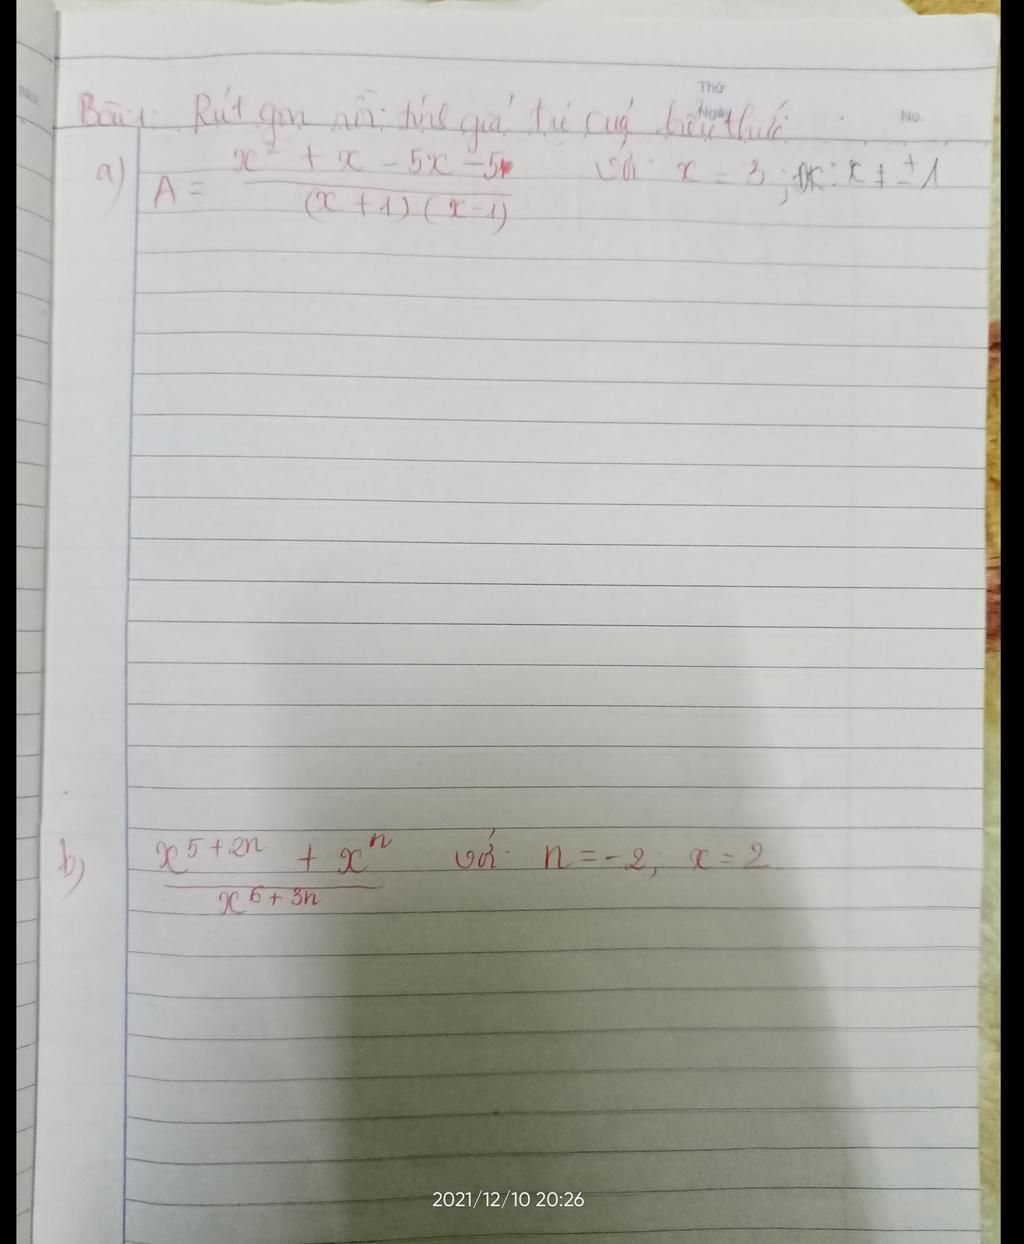 Thứ
Ngày
No.
No.
Bài 1: Rút gọn rồi tính giá trị của biểu thức
a) A = x² + x - 5x - 5 / (x + 1) (x - 1) với x = 3 ; đk: x ≠ ± 1
b) x^5+2n + x^n / x^6+3n với n = -2; x = 2
2021/12/10 20:26